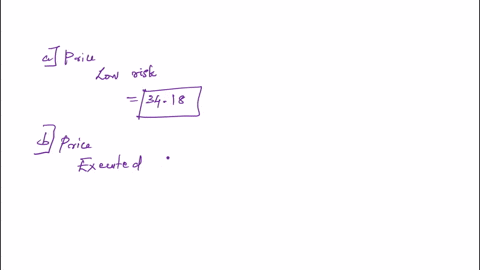 a] Price
Low risk
= 34.18
b] Price
Exented